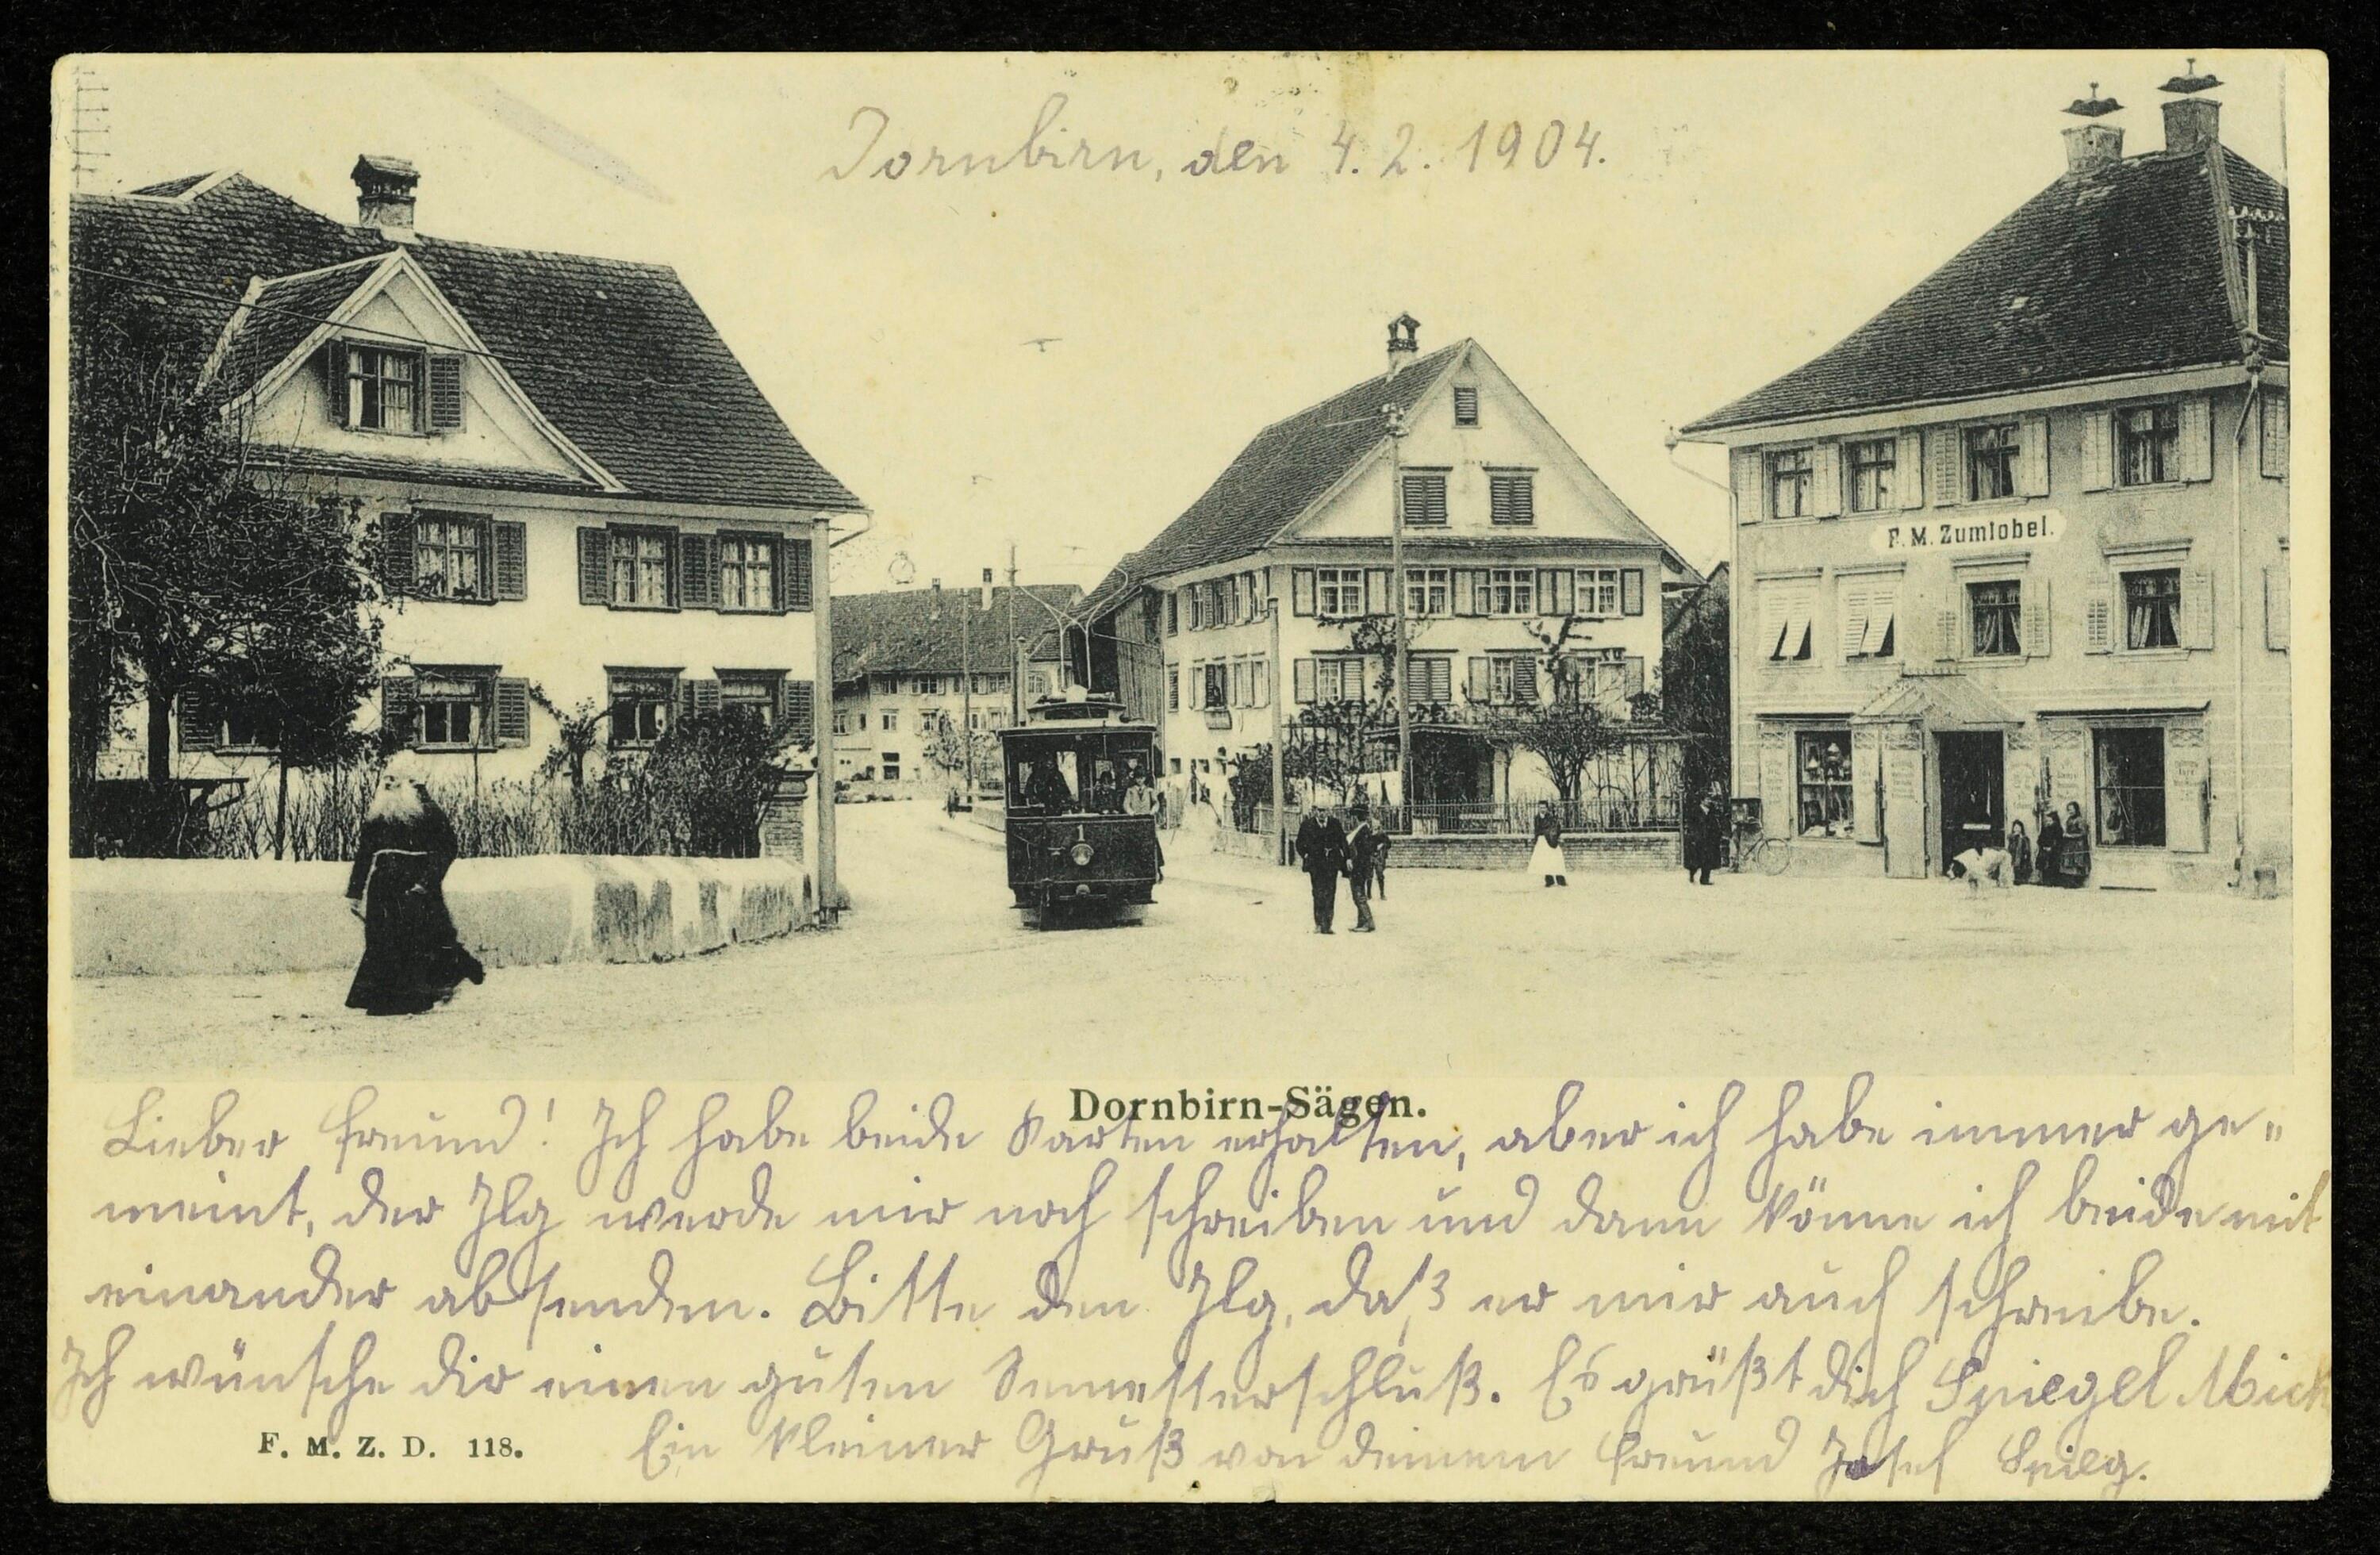 Dornbirn, den 4. 2. 1904.
F. M. Zumtobel.
1
Dornbirn-Sägen.
Lieber Freund! Ich habe beide Karten erhalten, aber ich habe immer ge=
meint, der Ilg werde mir noch schreiben und dann könne ich beide mit
einander absenden. Bitte den Ilg, daß er mir auch schreibe.
Ich wünsche dir einen guten Semesterschluß. Es grüßt dich Spiegel Mich
F. M. Z. D. 118.
Ein kleiner Gruß von deinem Freund Josef Spieg.